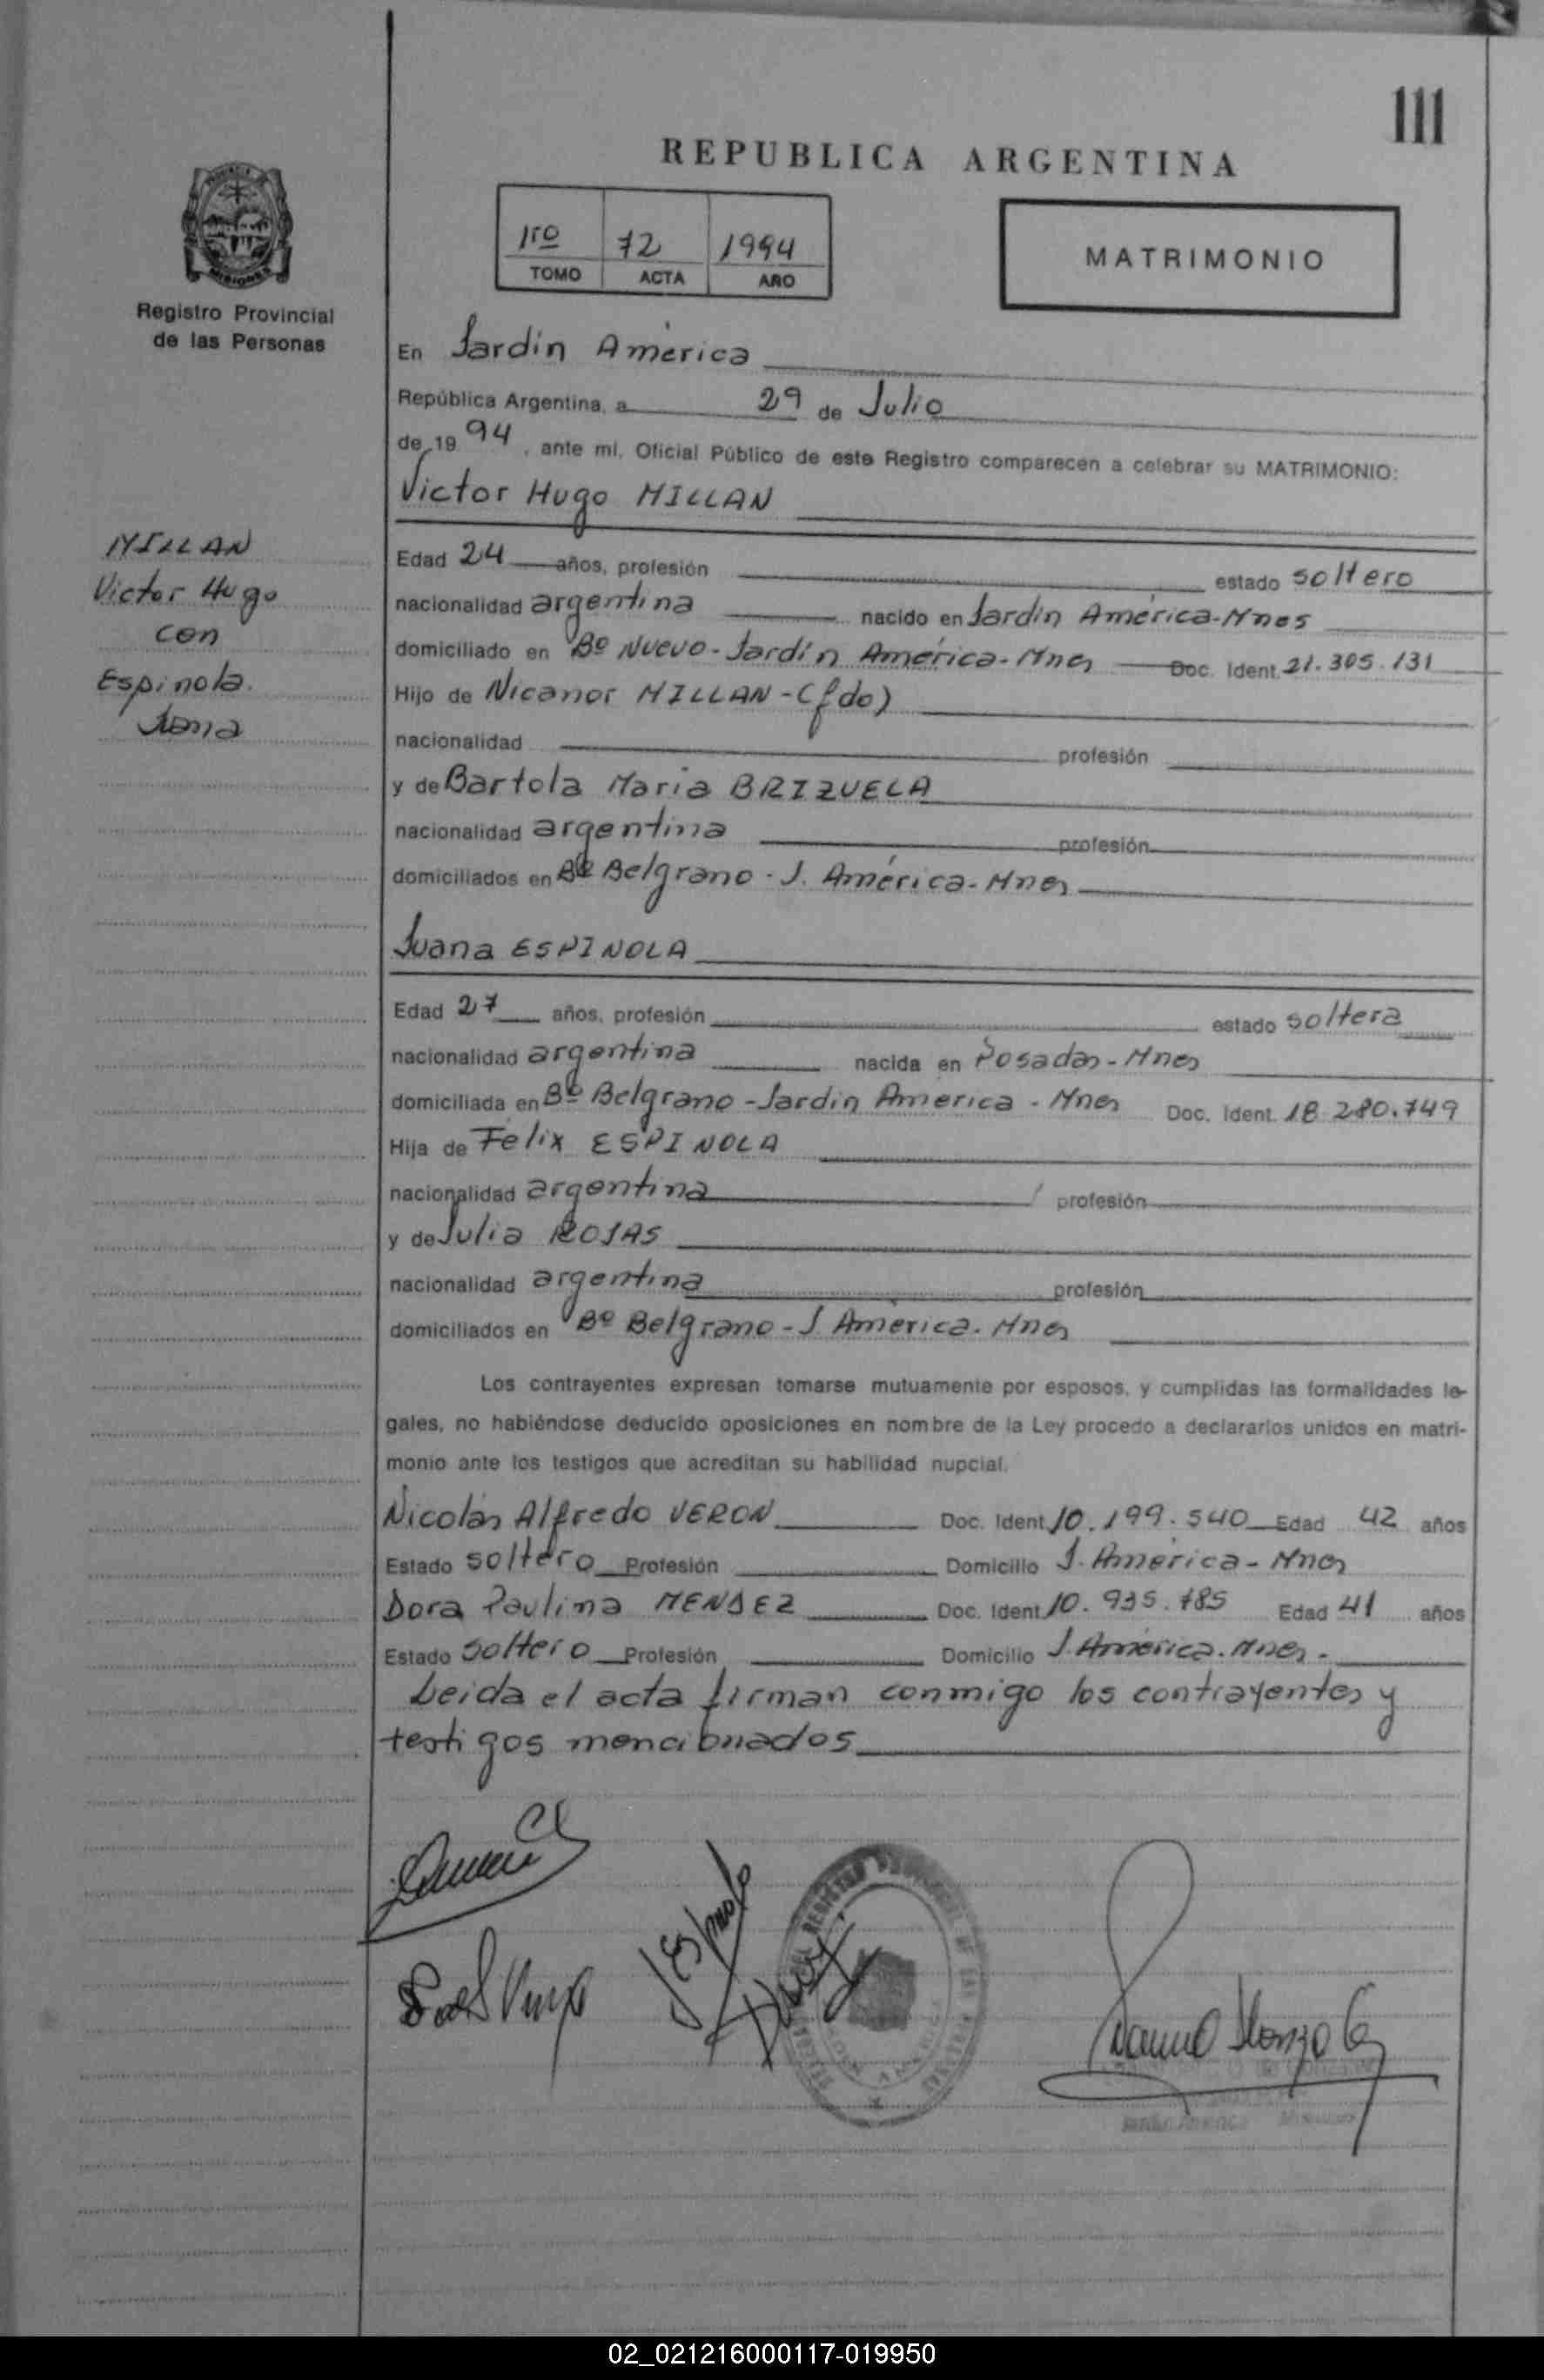 111
REPUBLICA ARGENTINA
1ro 72 1994
TOMO ACTA AÑO
MATRIMONIO
MISIONES
Registro Provincial
de las Personas
En Jardín América
República Argentina, a 29 de Julio
de 19 94, ante mí, Oficial Público de este Registro comparecen a celebrar su MATRIMONIO:
Victor Hugo MILLAN
MILLAN
Victor Hugo
con
Espinola
Juana
Edad 24 años, profesión estado soltero
nacionalidad argentina nacido en Jardín América-Mnes
domiciliado en Bº Nuevo-Jardín América-Mnes Doc. Ident. 21.305.131
Hijo de Nicanor MILLAN-(fdo)
nacionalidad profesión
y de Bartola Maria BRIZUELA
nacionalidad argentina profesión
domiciliados en Bº Belgrano-J. América-Mnes
Juana ESPINOLA
Edad 27 años, profesión estado soltera
nacionalidad argentina nacida en Posadas-Mnes
domiciliada en Bº Belgrano-Jardín América-Mnes Doc. Ident. 18.280.749
Hija de Félix ESPINOLA
nacionalidad argentina profesión
y de Julia ROJAS
nacionalidad argentina profesión
domiciliados en Bº Belgrano-J América-Mnes
Los contrayentes expresan tomarse mutuamente por esposos, y cumplidas las formalidades le-
gales, no habiéndose deducido oposiciones en nombre de la Ley procedo a declararlos unidos en matri-
monio ante los testigos que acreditan su habilidad nupcial.
Nicolás Alfredo VERON Doc. Ident. 10.199.540 Edad 42 años
Estado soltero Profesión Domicilio J. América-Mnes
Dora Paulina MENDEZ Doc. Ident. 10.935.785 Edad 41 años
Estado soltero Profesión Domicilio J. América.Mnes.
Leida el acta firman conmigo los contrayentes y
testigos mencionados
02_021216000117-019950